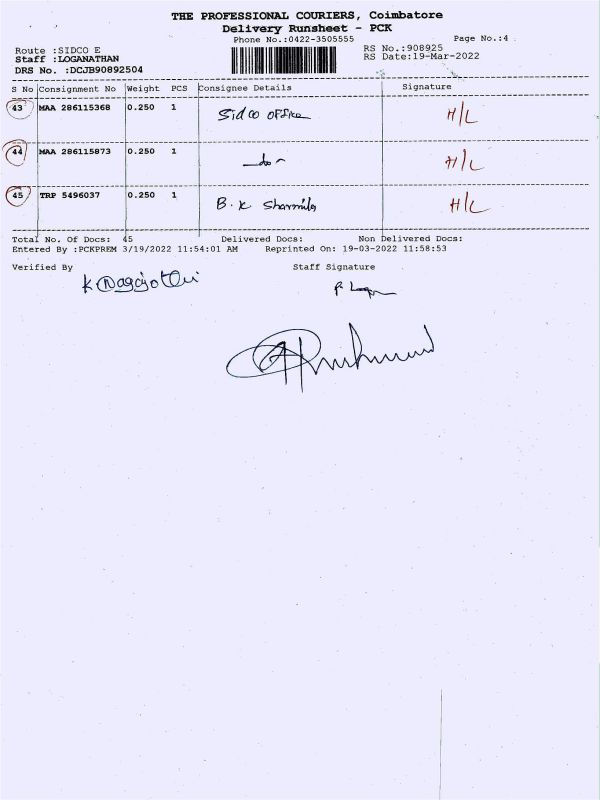 THE PROFESSIONAL COURIERS, Coimbatore
Delivery Runsheet - PCK
Phone No.:0422-3505555
Page No.:4
Route :SIDCO E
RS No.:908925
Staff :LOGANATHAN
RS Date:19-Mar-2022
DRS No. :DCJB90892504
S No Consignment No Weight PCS Consignee Details Signature
43 MAA 286115368 0.250 1 Sidco office H/L
44 MAA 286115873 0.250 1 -do- H/L
45 TRP 5496037 0.250 1 B.K Sharmila H/L
Total No. Of Docs: 45 Delivered Docs: Non Delivered Docs:
Entered By :PCKPREM 3/19/2022 11:54:01 AM Reprinted On: 19-03-2022 11:58:53
Verified By Staff Signature
K Nagajothi